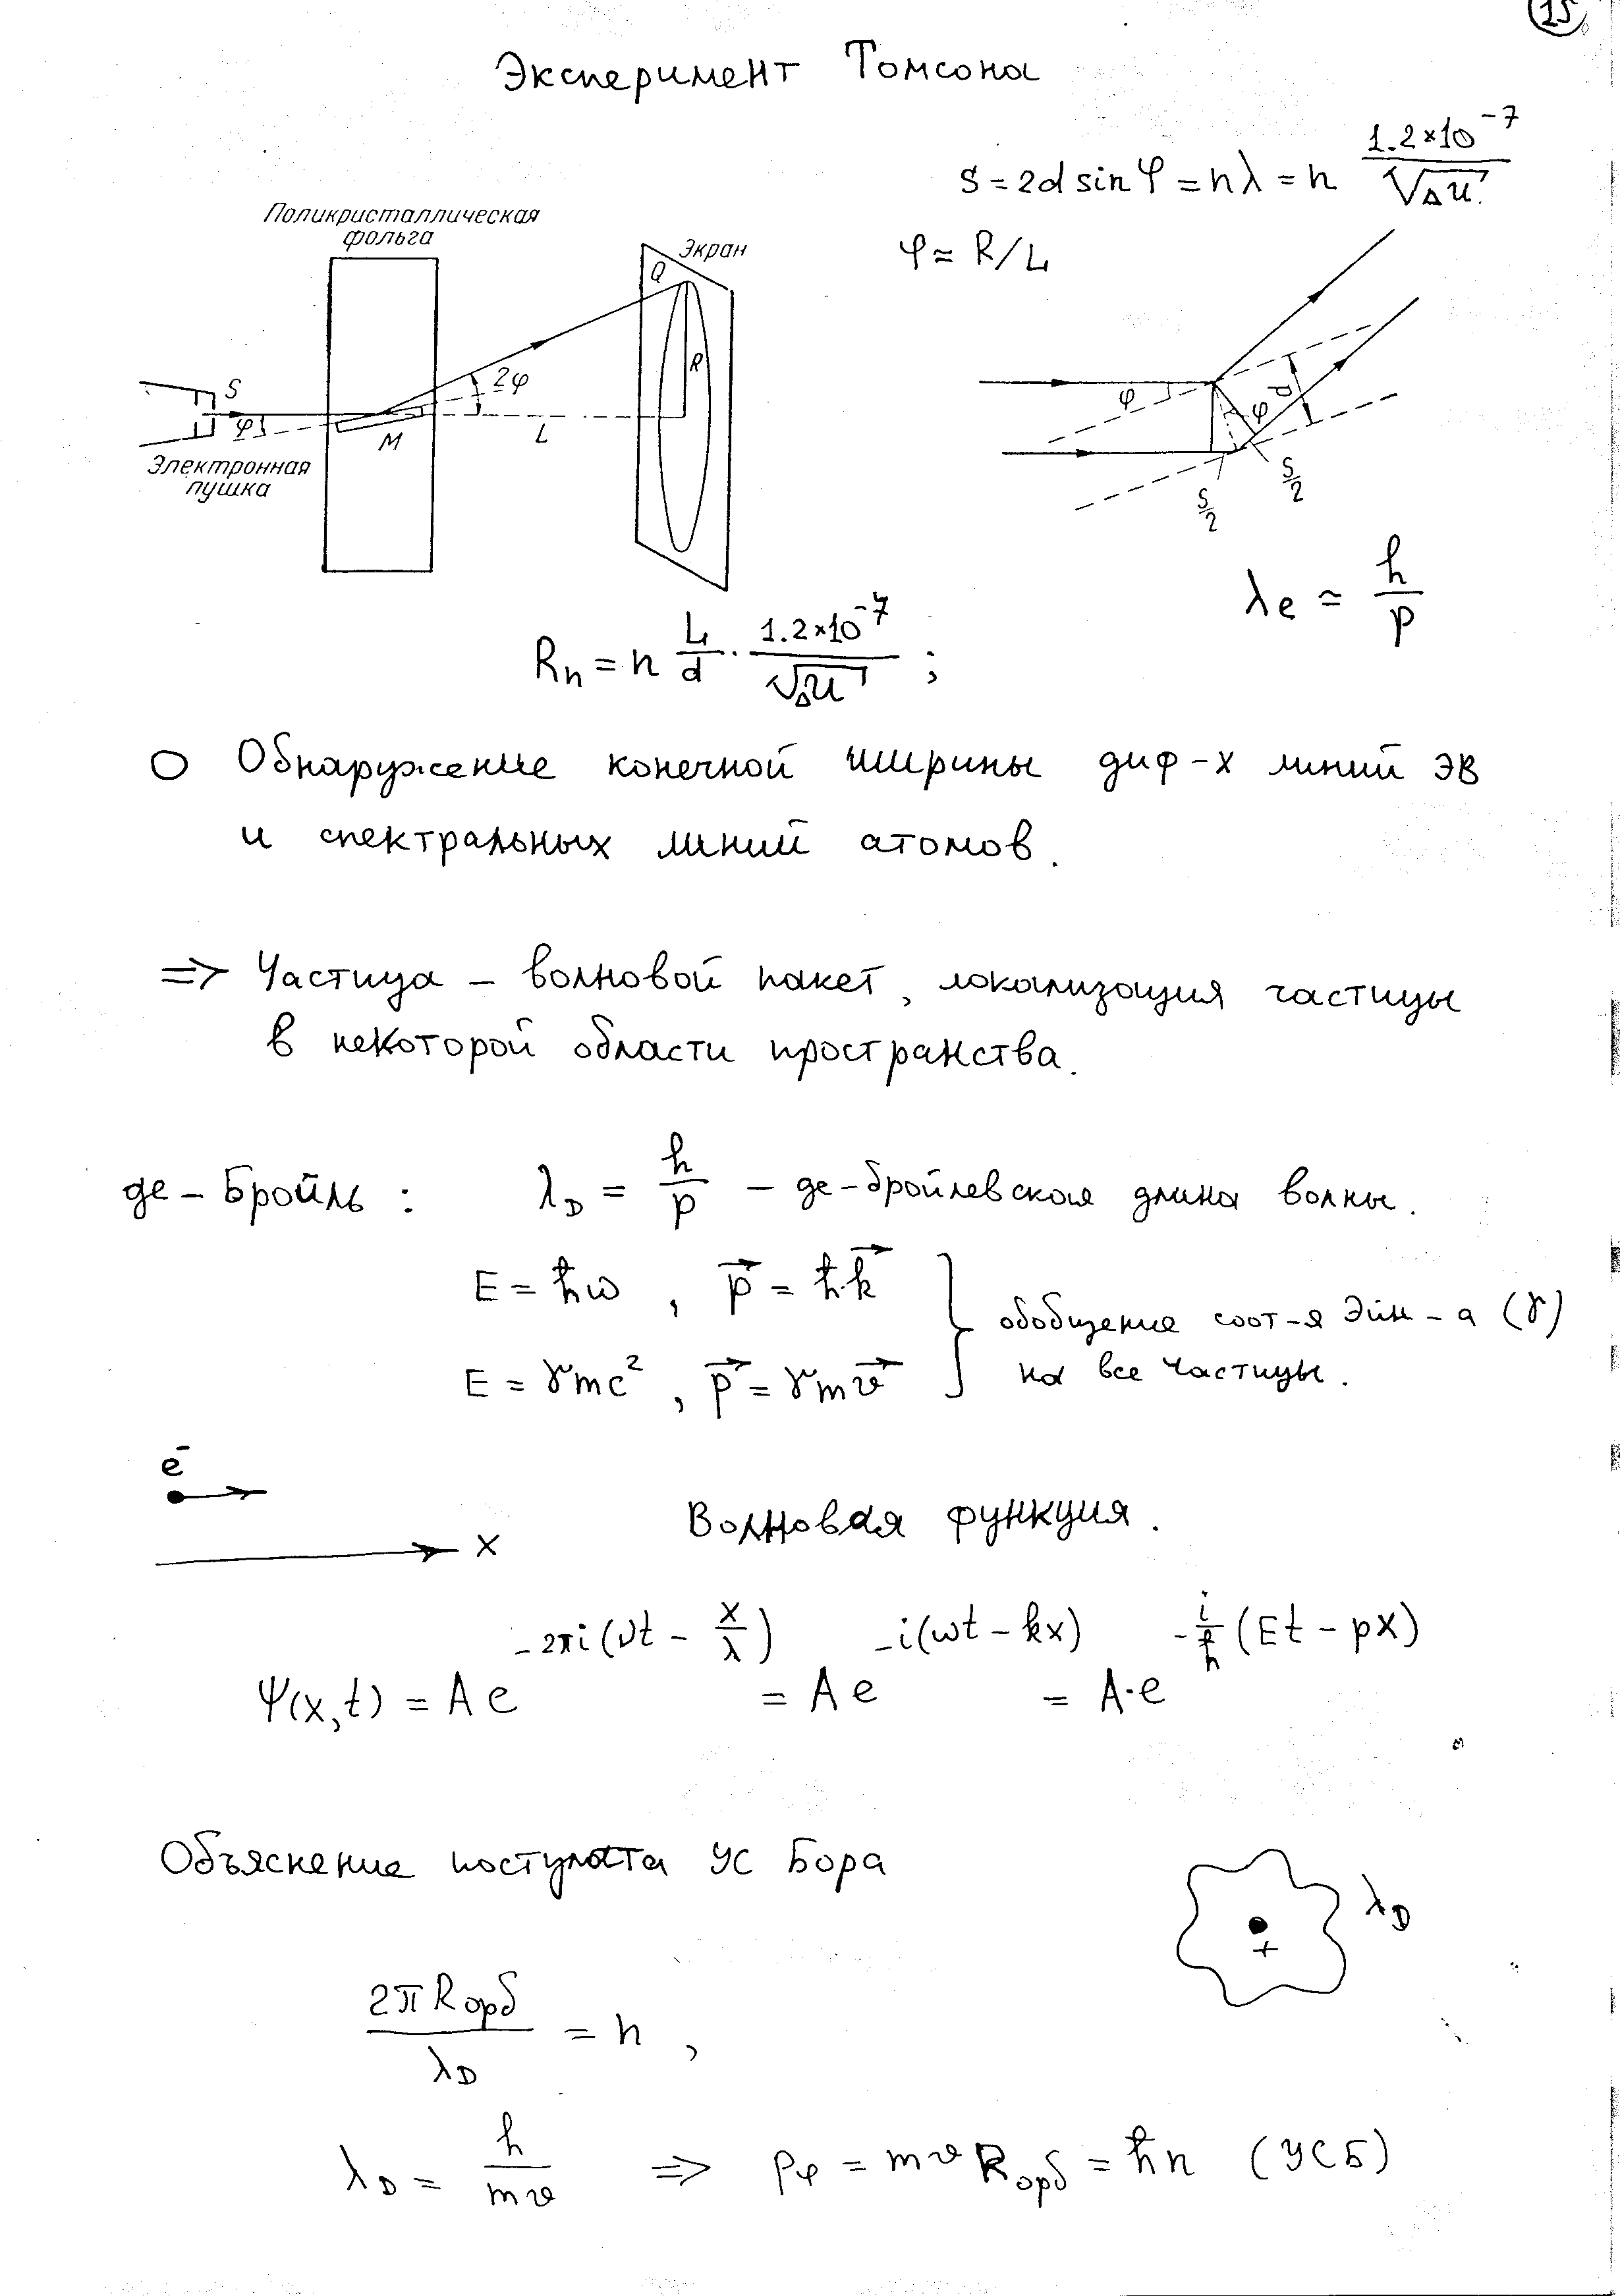 15
Эксперимент Томсона
S = 2d sin φ = nλ = n 1.2×10^-7 / √ΔU
φ ≈ R/L
Поликристаллическая
фольга
Экран
Q
R
S
φ
2φ
M
L
Электронная
пушка
φ
φ
d
S/2
S/2
λe ≃ h/p
Rn = n L/d · 1.2×10^-7 / √ΔU ;
○ Обнаружение конечной ширины диф-х линий ЭВ
и спектральных линий атомов.
=> Частица – волновой пакет, локализация частицы
в некоторой области пространства.
де-Бройль : λD = h/p – де-бройлевская длина волны.
E = ħω , p⃗ = ħk⃗
E = γmc² , p⃗ = γmv⃗
} обобщение соот-я Эйн-а (γ)
на все частицы.
e⁻
x
Волновая функция.
Ψ(x,t) = A e^{-2πi(νt - x/λ)} = A e^{-i(ωt - kx)} = A·e^{-i/ħ (Et - px)}
Объяснение постулата УС Бора
λD
+
2πRорб / λD = n ,
λD = h/mv => pφ = mvRорб = ħn (УСБ)